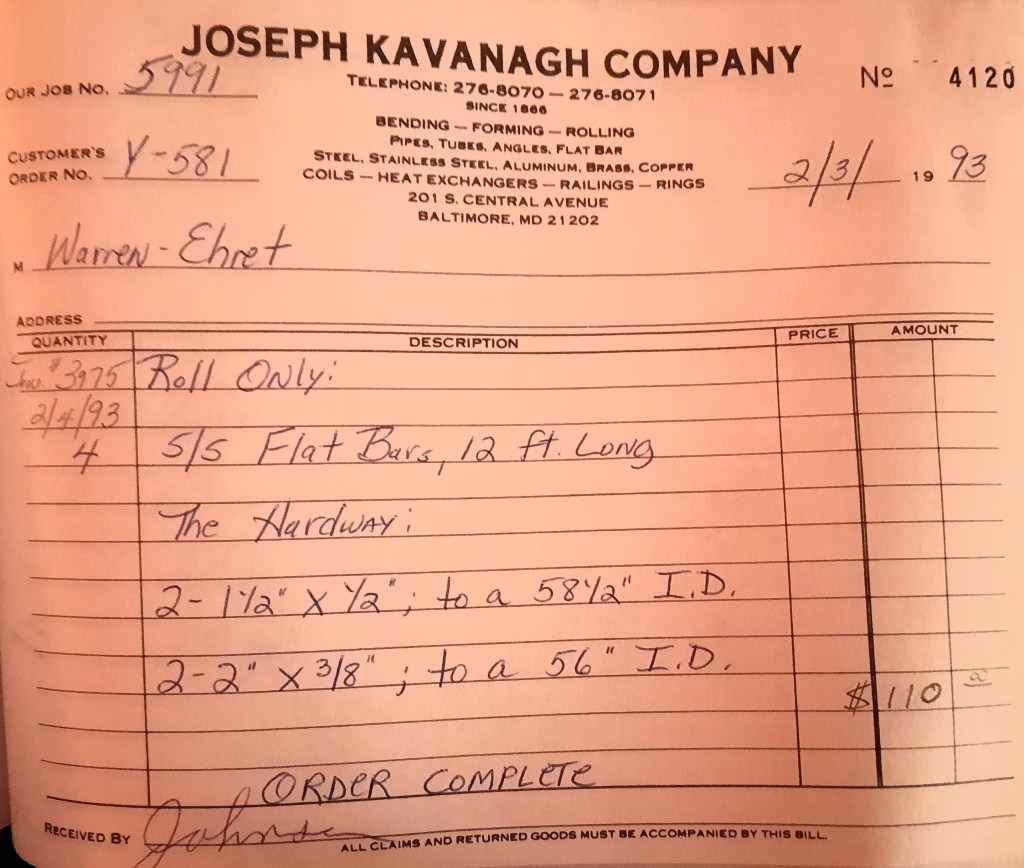 JOSEPH KAVANAGH COMPANY
OUR JOB NO. 5991
TELEPHONE: 276-8070 — 276-8071
Nº 4120
SINCE 1866
BENDING — FORMING — ROLLING
PIPES, TUBES, ANGLES, FLAT BAR
CUSTOMER'S ORDER NO. Y-581
STEEL, STAINLESS STEEL, ALUMINUM, BRASS, COPPER
COILS — HEAT EXCHANGERS — RAILINGS — RINGS
2/3/ 19 93
201 S. CENTRAL AVENUE
BALTIMORE, MD 21202
M Warren-Ehret
ADDRESS
QUANTITY DESCRIPTION PRICE AMOUNT
Inv. #3975 Roll Only:
2/4/93
4 S/S Flat Bars, 12 ft. Long
The Hardway:
2- 1 1/2" X 1/2"; to a 58 1/2" I.D.
2- 2" X 3/8"; to a 56" I.D.
$ 110 00
ORDER COMPLETE
RECEIVED BY
ALL CLAIMS AND RETURNED GOODS MUST BE ACCOMPANIED BY THIS BILL.